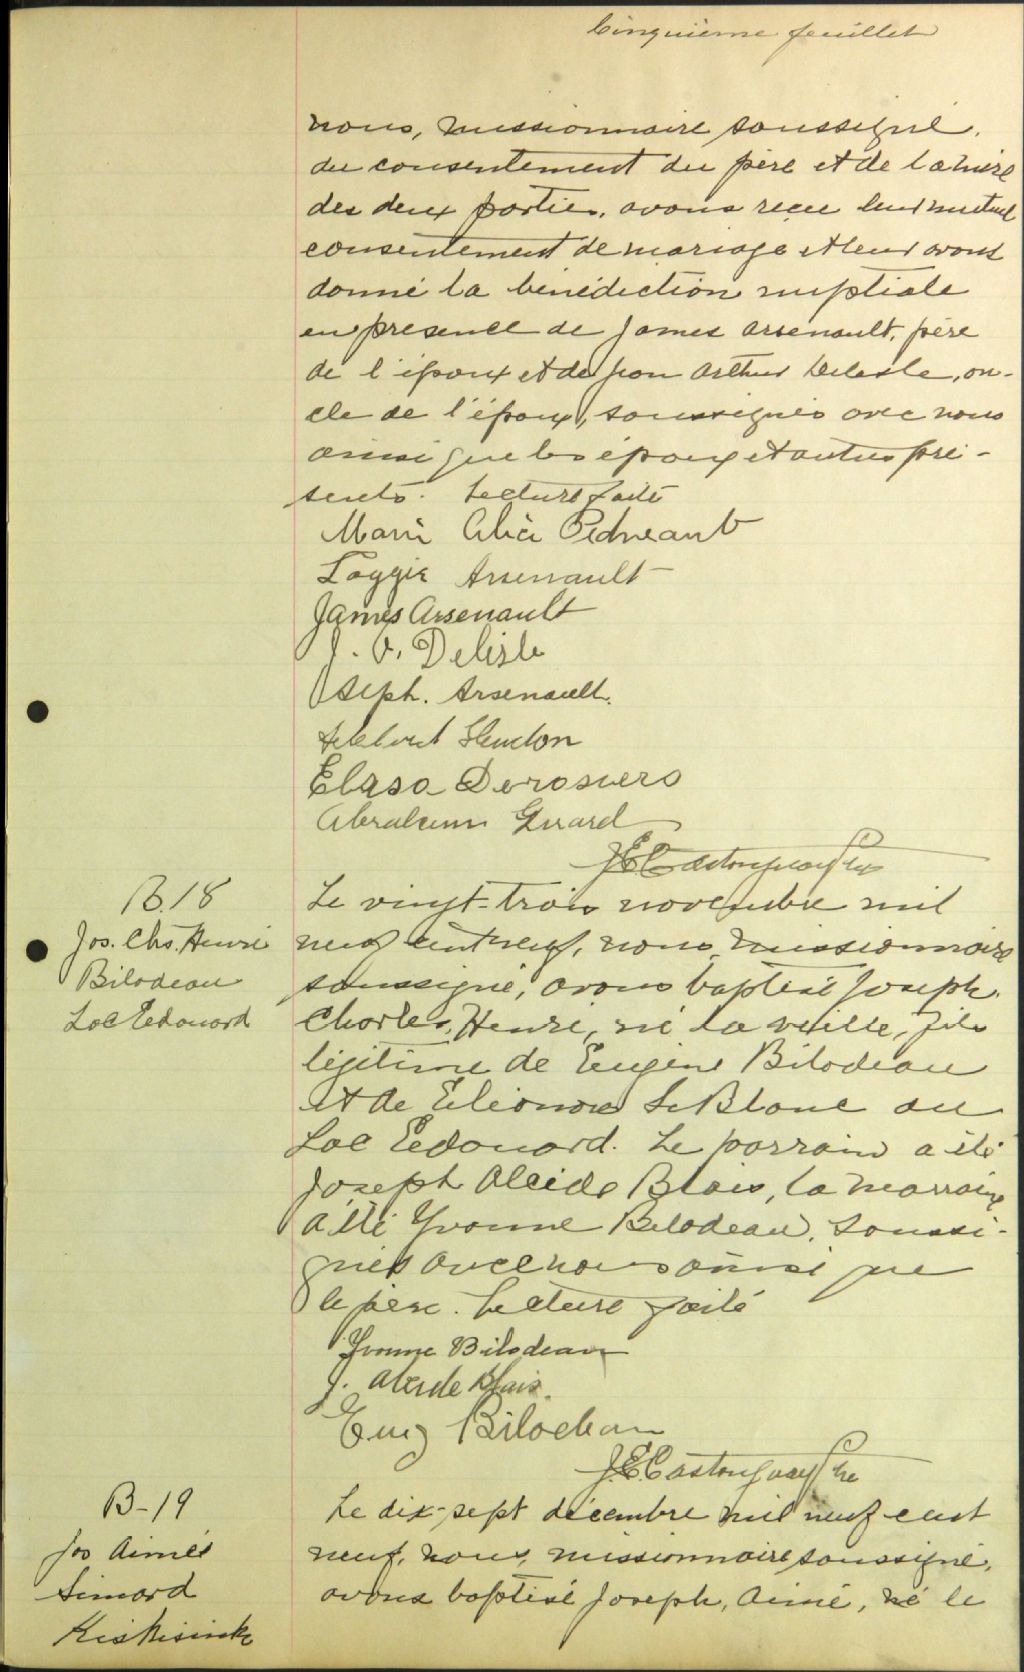 Cinquième feuillet
nous, missionnaire soussigné,
du consentement du père et de la mère
des deux parties, avons reçu leur mutuel
consentement de mariage et leur avons
donné la bénédiction nuptiale
en présence de James Arsenault, père
de l'époux et de Jean Arthur Delisle, on-
cle de l'époux, soussignés avec nous
ainsi que les époux et autres pré-
sents. Lecture faite
Marie Alice Pedneault
Loggie Arsenault
James Arsenault
J. A. Delisle
Joseph. Arsenault.
Elisa Derosiers
Abraham Girard
J.E. Castonguay Ptre
B.18
Jos. Chs. Henri
Bilodeau
Lac Edouard
Le vingt-trois novembre mil
neuf cent neuf, nous, missionnaire
soussigné, avons baptisé Joseph,
Charles, Henri, né la veille, fils
légitime de Eugène Bilodeau
et de Eléonore LeBlanc du
Lac Edouard. Le parrain a été
Joseph Alcide Blais, la marraine
a été Yvonne Bilodeau, soussi-
gnés avec nous ainsi que
le père. Lecture faite
Yvonne Bilodeau
J. Alcide Blais.
Eug Bilodeau
J.E. Castonguay Ptre
B-19
Jos Aimé
Simard
Kiskisink
Le dix-sept décembre mil neuf cent
neuf, nous, missionnaire soussigné,
avons baptisé Joseph, Aimé, né le